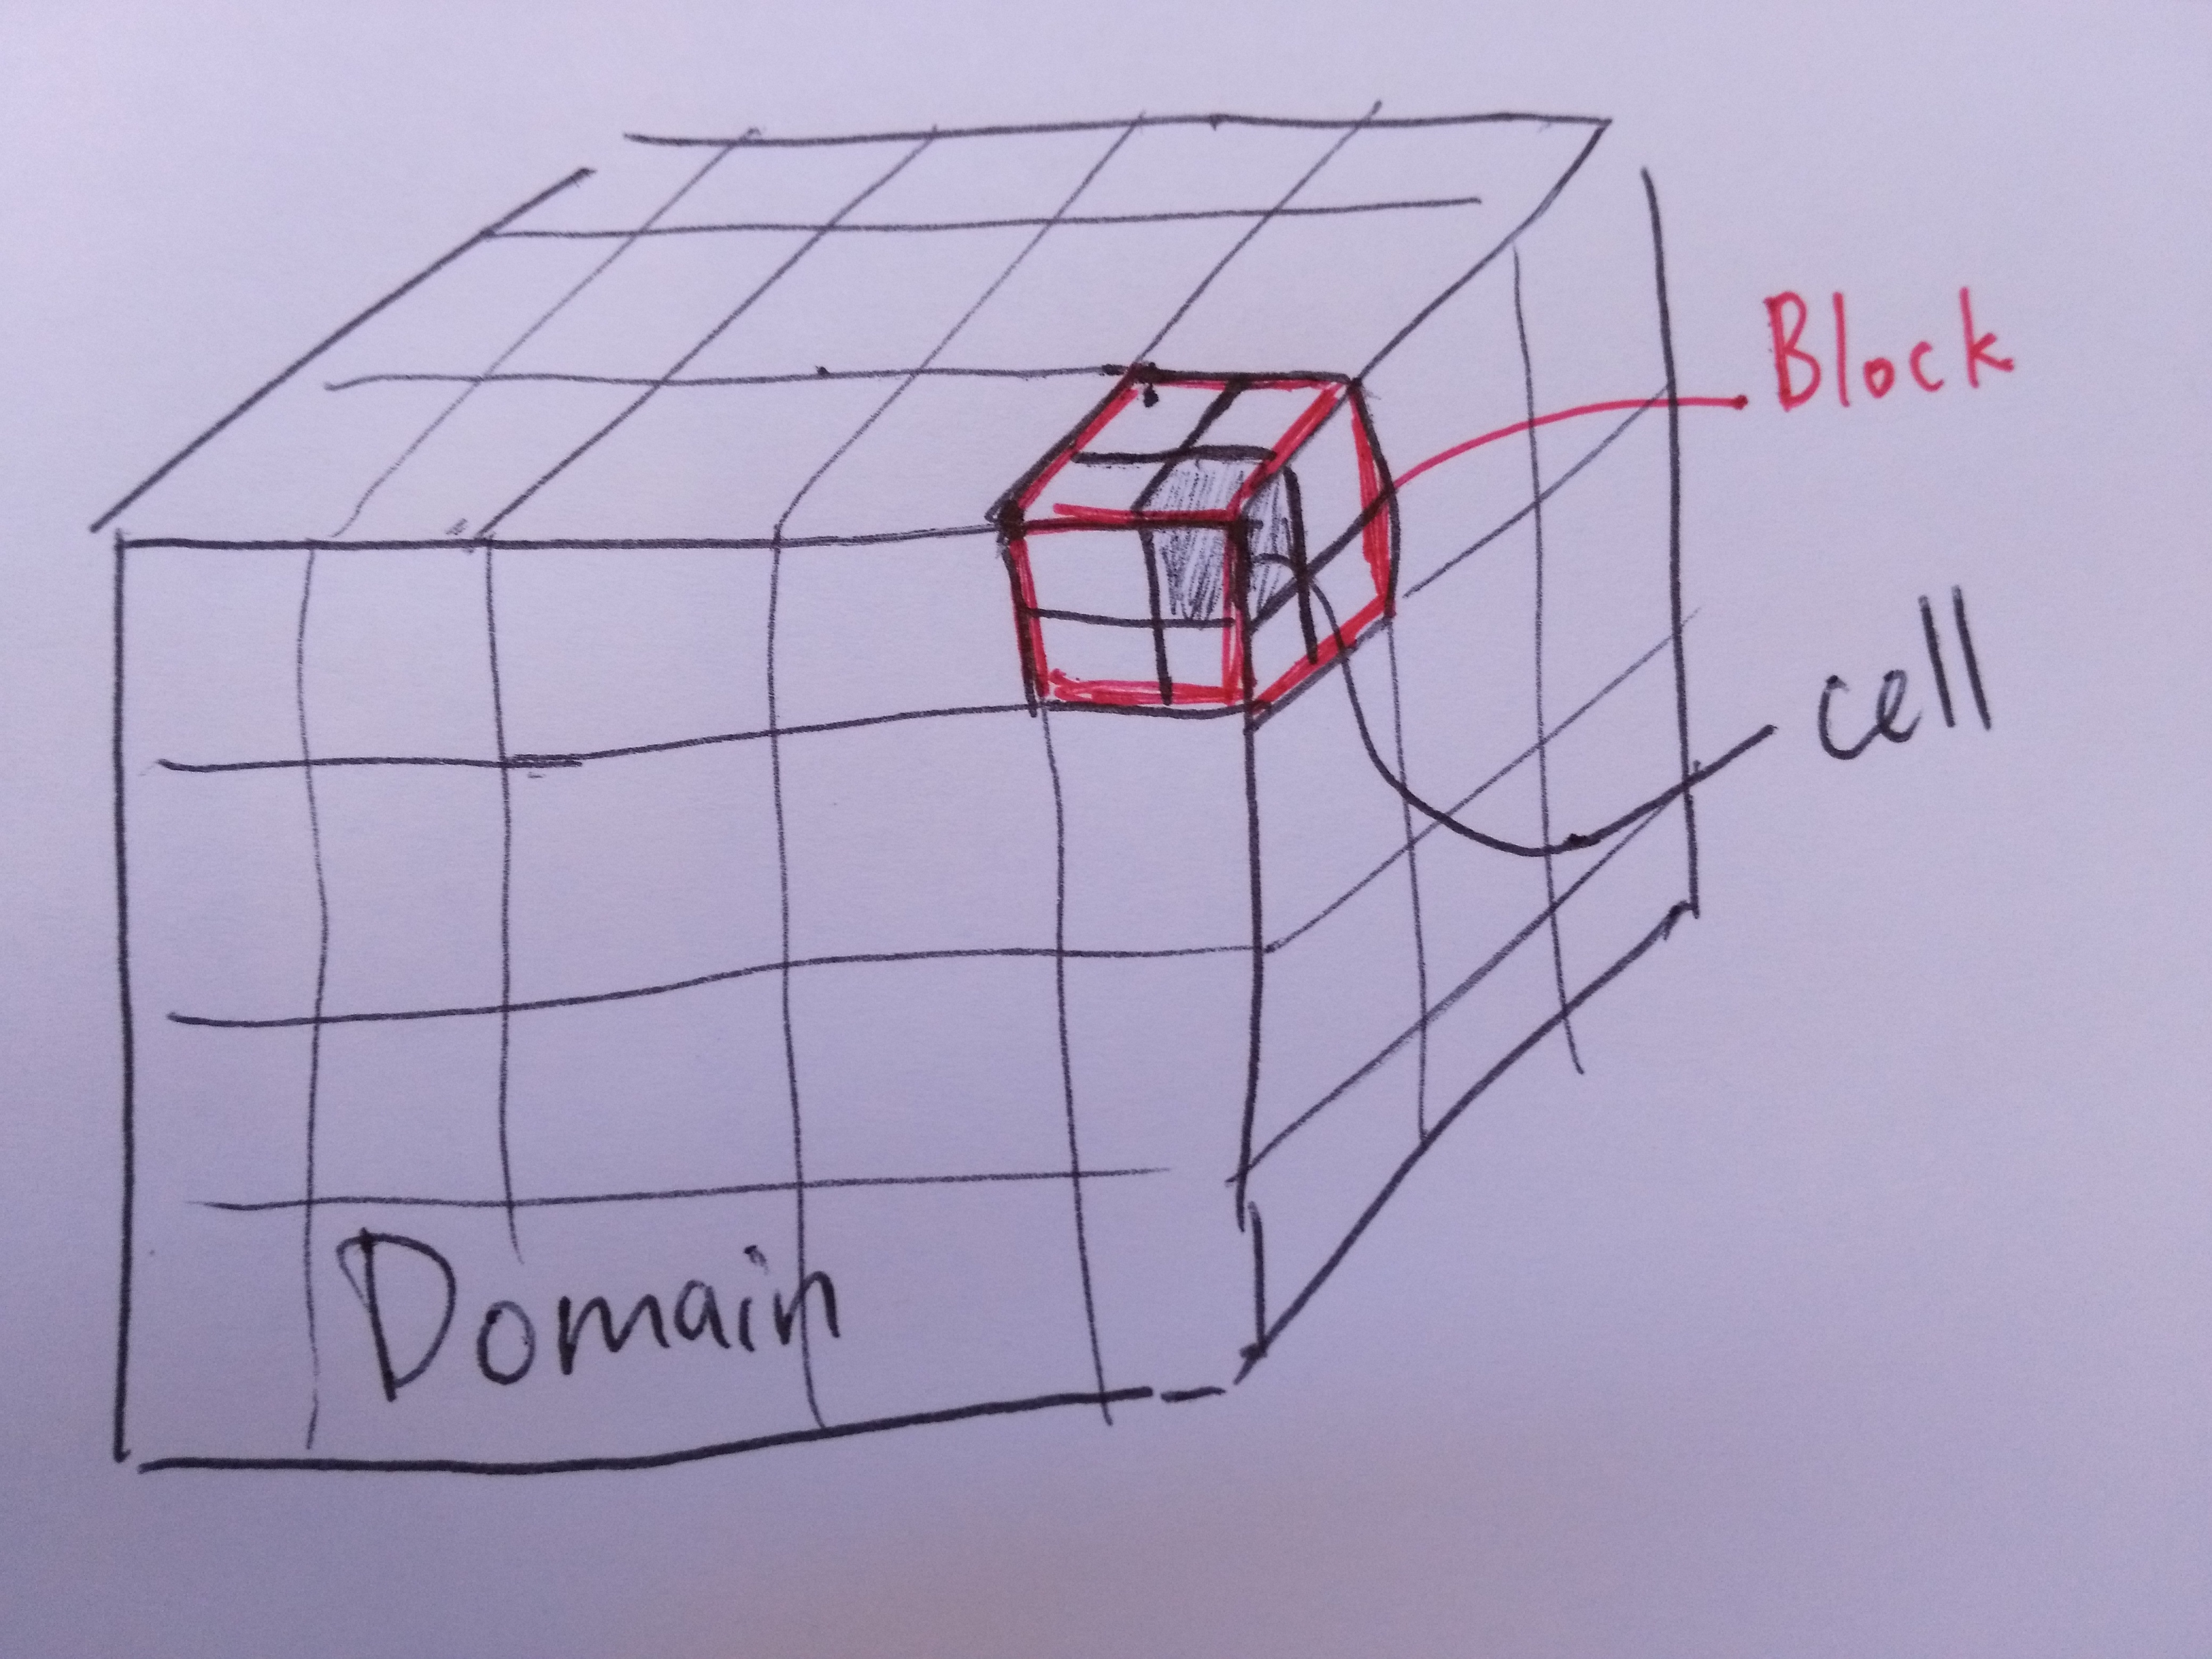 Block
cell
Domain